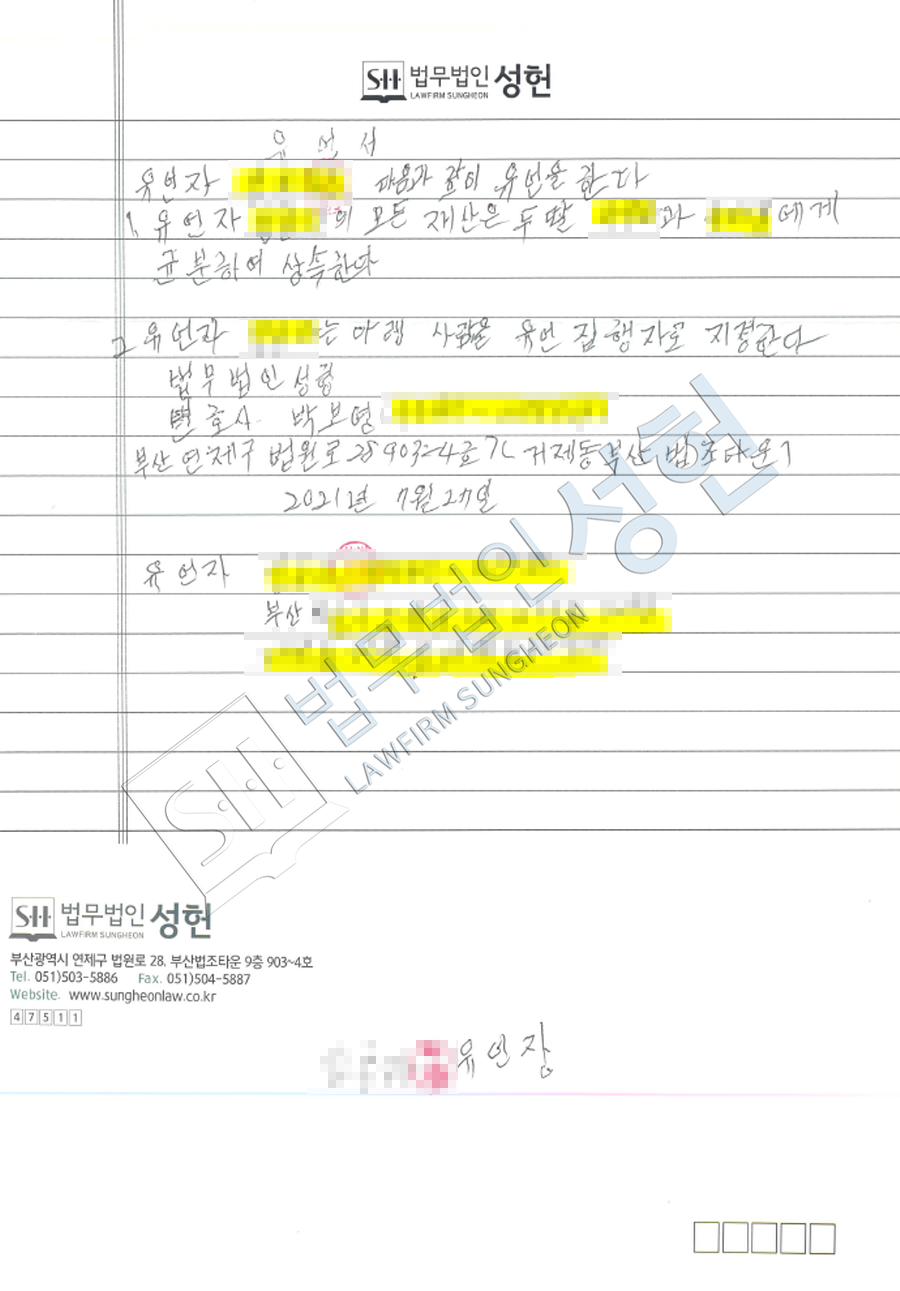 SH 법무법인 성헌
LAWFIRM SUNGHEON
유언서
유언자 다음과 같이 유언을 한다
1. 유언자 의 모든 재산은 두 딸 과 에게
균분하여 상속한다
2 유언자 는 아래 사람을 유언 집행자로 지정한다
법무법인 성헌
변호사 박보영
부산 연제구 법원로 28 903~4호 거제동 부산 법조타운
2021년 7월 27일
유언자
부산
법무법인 성헌
LAWFIRM SUNGHEON
SH
SH 법무법인 성헌
LAWFIRM SUNGHEON
부산광역시 연제구 법원로 28, 부산법조타운 9층 903~4호
Tel. 051)503-5886 Fax. 051)504-5887
Website. www.sungheonlaw.co.kr
47511
유언장